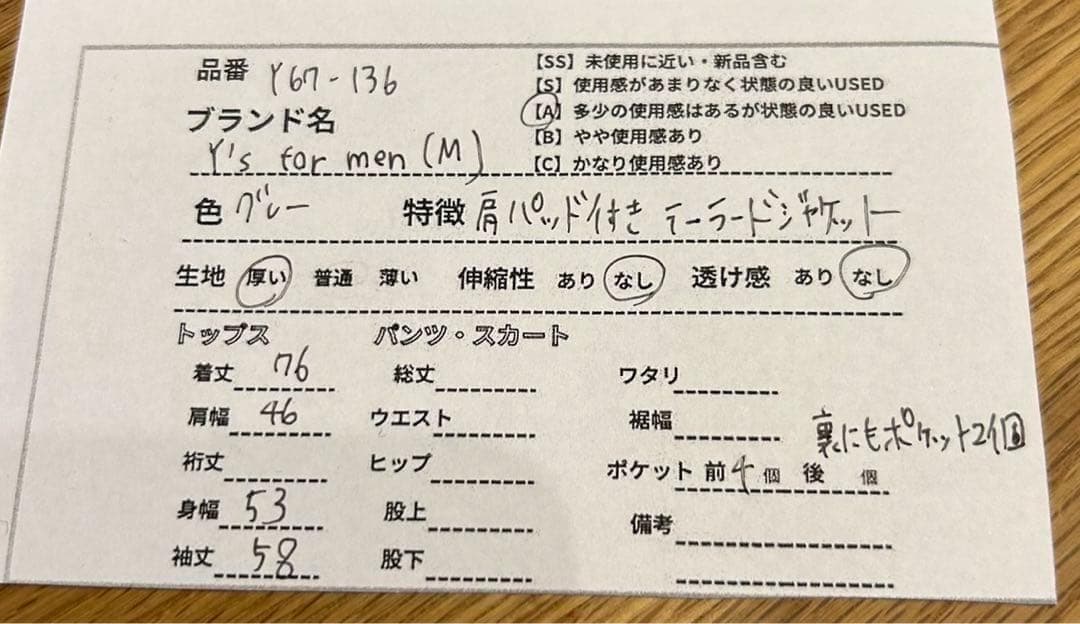 品番 Y67-136
【SS】未使用に近い・新品含む
【S】使用感があまりなく状態の良いUSED
【A】多少の使用感はあるが状態の良いUSED
【B】やや使用感あり
【C】かなり使用感あり
ブランド名
Y's for men (M)
色 グレー 特徴 肩パッド付き テーラードジャケット
生地 厚い 普通 薄い 伸縮性 あり なし 透け感 あり なし
トップス パンツ・スカート
着丈 76 総丈 ワタリ
肩幅 46 ウエスト 裾幅
裏にもポケット2個
裄丈 ヒップ ポケット 前4個 後 個
身幅 53 股上 備考
袖丈 58 股下